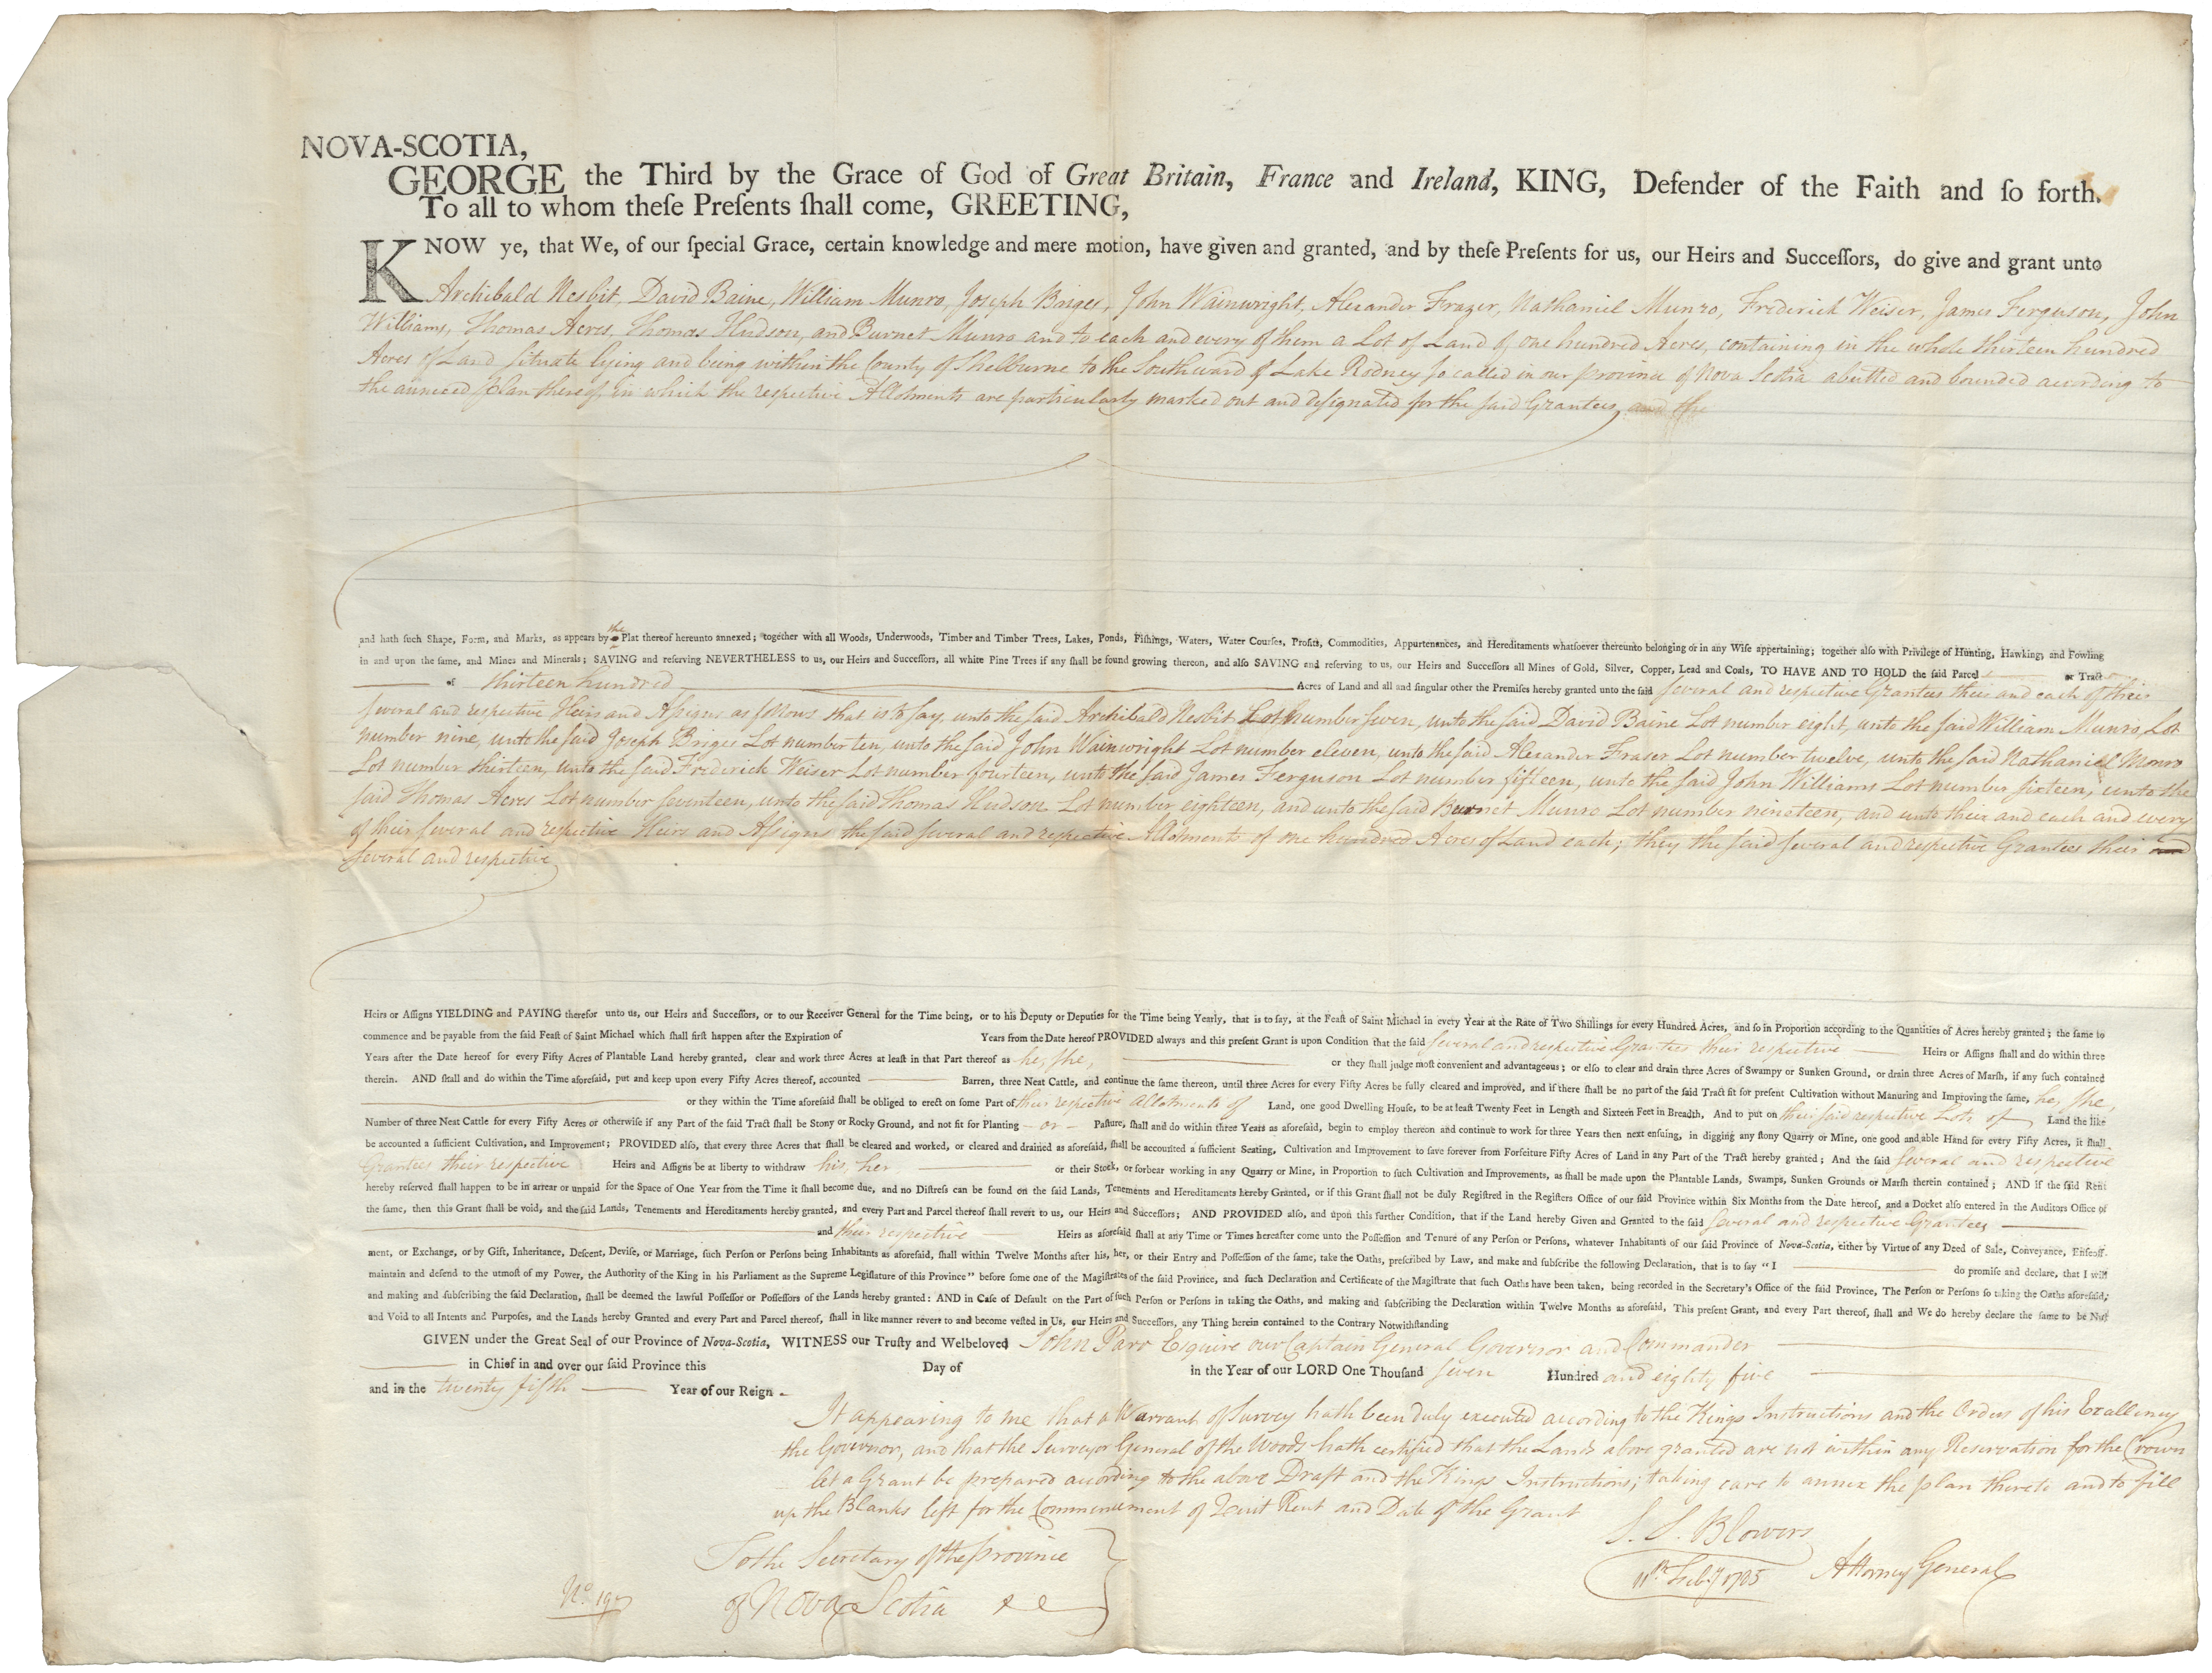 NOVA-SCOTIA,
GEORGE the Third by the Grace of God of Great Britain, France and Ireland, KING, Defender of the Faith and ſo forth.
To all to whom theſe Preſents ſhall come, GREETING,
KNOW ye, that We, of our ſpecial Grace, certain knowledge and mere motion, have given and granted, and by theſe Preſents for us, our Heirs and Succeſſors, do give and grant unto
Archibald Nesbit, David Baine, William Munro, Joseph Briges, John Wainwright, Alexander Frazer, Nathaniel Munro, Frederick Weiser, James Ferguson, John
Williams, Thomas Acres, Thomas Hudson, and Burnet Munro and to each and every of them a Lot of Land of one hundred Acres, containing in the whole thirteen hundred
Acres of Land ſituate lying and being within the County of Shelburne to the Southward of Lake Rodney ſo called in our province of Nova Scotia abutted and bounded according to
the annexed plan thereof, in which the respective Allotments are particularly marked out and deſignated for the ſaid Grantees, and the
and hath ſuch Shape, Form, and Marks, as appears by the Plat thereof hereunto annexed; together with all Woods, Underwoods, Timber and Timber Trees, Lakes, Ponds, Fiſhings, Waters, Water Courſes, Profits, Commodities, Appurtenances, and Hereditaments whatſoever thereunto belonging or in any Wiſe appertaining; together alſo with Privilege of Hunting, Hawking, and Fowling
in and upon the ſame, and Mines and Minerals; SAVING and reſerving NEVERTHELESS to us, our Heirs and Succeſſors, all white Pine Trees if any ſhall be found growing thereon, and alſo SAVING and reſerving to us, our Heirs and Succeſſors all Mines of Gold, Silver, Copper, Lead and Coals, TO HAVE AND TO HOLD the ſaid Parcel or Tract
of thirteen hundred Acres of Land and all and ſingular other the Premiſes hereby granted unto the ſaid ſeveral and respective Grantees their and each of their
ſeveral and respective Heirs and Aſsigns as follows that is to ſay, unto the ſaid Archibald Nesbit Lot Number ſeven, unto the ſaid David Baine Lot number eight, unto the ſaid William Munro, Lot
number nine, unto the ſaid Joseph Briges Lot number ten, unto the ſaid John Wainwright Lot number eleven, unto the ſaid Alexander Fraser Lot number twelve, unto the ſaid Nathaniel Monro
Lot number thirteen, unto the ſaid Frederick Weiser Lot number fourteen, unto the ſaid James Ferguson Lot number fifteen, unto the ſaid John Williams Lot number ſixteen, unto the
ſaid Thomas Acres Lot number ſeventeen, unto the ſaid Thomas Hudson Lot number eighteen, and unto the ſaid Burnet Munro Lot number nineteen, and unto their and each and every
of their ſeveral and respective Heirs and Aſsigns the ſaid ſeveral and respective Allotments of one hundred Acres of Land each; they the ſaid ſeveral and respective Grantees their and
ſeveral and respective
Heirs or Aſſigns YIELDING and PAYING therefor unto us, our Heirs and Succeſſors, or to our Receiver General for the Time being, or to his Deputy or Deputies for the Time being Yearly, that is to ſay, at the Feaſt of Saint Michael in every Year at the Rate of Two Shillings for every Hundred Acres, and ſo in Proportion according to the Quantities of Acres hereby granted; the ſame to
commence and be payable from the ſaid Feaſt of Saint Michael which ſhall firſt happen after the Expiration of Years from the Date hereof PROVIDED always and this preſent Grant is upon Condition that the ſaid ſeveral and respective Grantees their respective Heirs or Aſſigns ſhall and do within three
Years after the Date hereof for every Fifty Acres of Plantable Land hereby granted, clear and work three Acres at leaſt in that Part thereof as he, ſhe, or they ſhall judge moſt convenient and advantageous; or elſo to clear and drain three Acres of Swampy or Sunken Ground, or drain three Acres of Marſh, if any ſuch contained
therein. AND ſhall and do within the Time aforeſaid, put and keep upon every Fifty Acres thereof, accounted Barren, three Neat Cattle, and continue the ſame thereon, until three Acres for every Fifty Acres be fully cleared and improved, and if there ſhall be no part of the ſaid Tract fit for preſent Cultivation without Manuring and Improving the ſame, he, ſhe,
or they within the Time aforeſaid ſhall be obliged to erect on ſome Part of their respective Allotments of Land, one good Dwelling Houſe, to be at leaſt Twenty Feet in Length and Sixteen Feet in Breadth, And to put on their ſaid respective Lots of Land the like
Number of three Neat Cattle for every Fifty Acres or otherwiſe if any Part of the ſaid Tract ſhall be Stony or Rocky Ground, and not fit for Planting or Paſture, ſhall and do within three Years as aforeſaid, begin to employ thereon and continue to work for three Years then next enſuing, in digging any ſtony Quarry or Mine, one good and able Hand for every Fifty Acres, it ſhall
be accounted a ſufficient Cultivation, and Improvement; PROVIDED alſo, that every three Acres that ſhall be cleared and worked, or cleared and drained as aforeſaid, ſhall be accounted a ſufficient Seating, Cultivation and Improvement to ſave forever from Forfeiture Fifty Acres of Land in any Part of the Tract hereby granted; And the ſaid ſeveral and respective
Grantees their respective Heirs and Aſſigns be at liberty to withdraw his, her or their Stock, or forbear working in any Quarry or Mine, in Proportion to ſuch Cultivation and Improvements, as ſhall be made upon the Plantable Lands, Swamps, Sunken Grounds or Marſh therein contained; AND if the ſaid Rent
hereby reſerved ſhall happen to be in arrear or unpaid for the Space of One Year from the Time it ſhall become due, and no Diſtreſs can be found on the ſaid Lands, Tenements and Hereditaments hereby Granted, or if this Grant ſhall not be duly Regiſtred in the Regiſters Office of our ſaid Province within Six Months from the Date hereof, and a Docket alſo entered in the Auditors Office of
the ſame, then this Grant ſhall be void, and the ſaid Lands, Tenements and Hereditaments hereby granted, and every Part and Parcel thereof ſhall revert to us, our Heirs and Succeſſors; AND PROVIDED alſo, and upon this further Condition, that if the Land hereby Given and Granted to the ſaid ſeveral and respective Grantees
and their respective Heirs as aforeſaid ſhall at any Time or Times hereafter come unto the Poſſeſſion and Tenure of any Perſon or Perſons, whatever Inhabitants of our ſaid Province of Nova-Scotia, either by Virtue of any Deed of Sale, Conveyance, Enfeoff-
ment, or Exchange, or by Gift, Inheritance, Deſcent, Deviſe, or Marriage, ſuch Perſon or Perſons being Inhabitants as aforeſaid, ſhall within Twelve Months after his, her, or their Entry and Poſſeſſion of the ſame, take the Oaths, preſcribed by Law, and make and ſubſcribe the following Declaration, that is to ſay "I do promiſe and declare, that I will
maintain and defend to the utmoſt of my Power, the Authority of the King in his Parliament as the Supreme Legiſlature of this Province" before ſome one of the Magiſtrates of the ſaid Province, and ſuch Declaration and Certificate of the Magiſtrate that ſuch Oaths have been taken, being recorded in the Secretary's Office of the ſaid Province, The Perſon or Perſons ſo taking the Oaths aforeſaid,
and making and ſubſcribing the ſaid Declaration, ſhall be deemed the lawful Poſſeſſor or Poſſeſſors of the Lands hereby granted: AND in Caſe of Default on the Part of ſuch Perſon or Perſons in taking the Oaths, and making and ſubſcribing the Declaration within Twelve Months as aforeſaid, This preſent Grant, and every Part thereof, ſhall and We do hereby declare the ſame to be Null
and Void to all Intents and Purpoſes, and the Lands hereby Granted and every Part and Parcel thereof, ſhall in like manner revert to and become veſted in Us, our Heirs and Succeſſors, any Thing herein contained to the Contrary Notwithſtanding
GIVEN under the Great Seal of our Province of Nova-Scotia, WITNESS our Truſty and Welbeloved John Parr Esquire our Captain General Governor and Commander
in Chief in and over our ſaid Province this Day of in the Year of our LORD One Thouſand ſeven Hundred and eighty five
and in the twenty fifth Year of our Reign.
It appearing to me that a Warrant of Survey hath been duly executed according to the Kings Instructions and the Orders of his Excellency
the Governor, and that the Surveyor General of the Woods hath certified that the Lands above granted are not within any Reservation for the Crown
Let a Grant be prepared according to the above Draft and the Kings Instructions; taking care to annex the plan thereto and to fill
up the Blanks left for the Commencement of Quit Rent and Date of the Grant
S. S. Blowers
To the Secretary of the province
11th Feby 1785 Attorney General
of Nova Scotia &c
No. 197